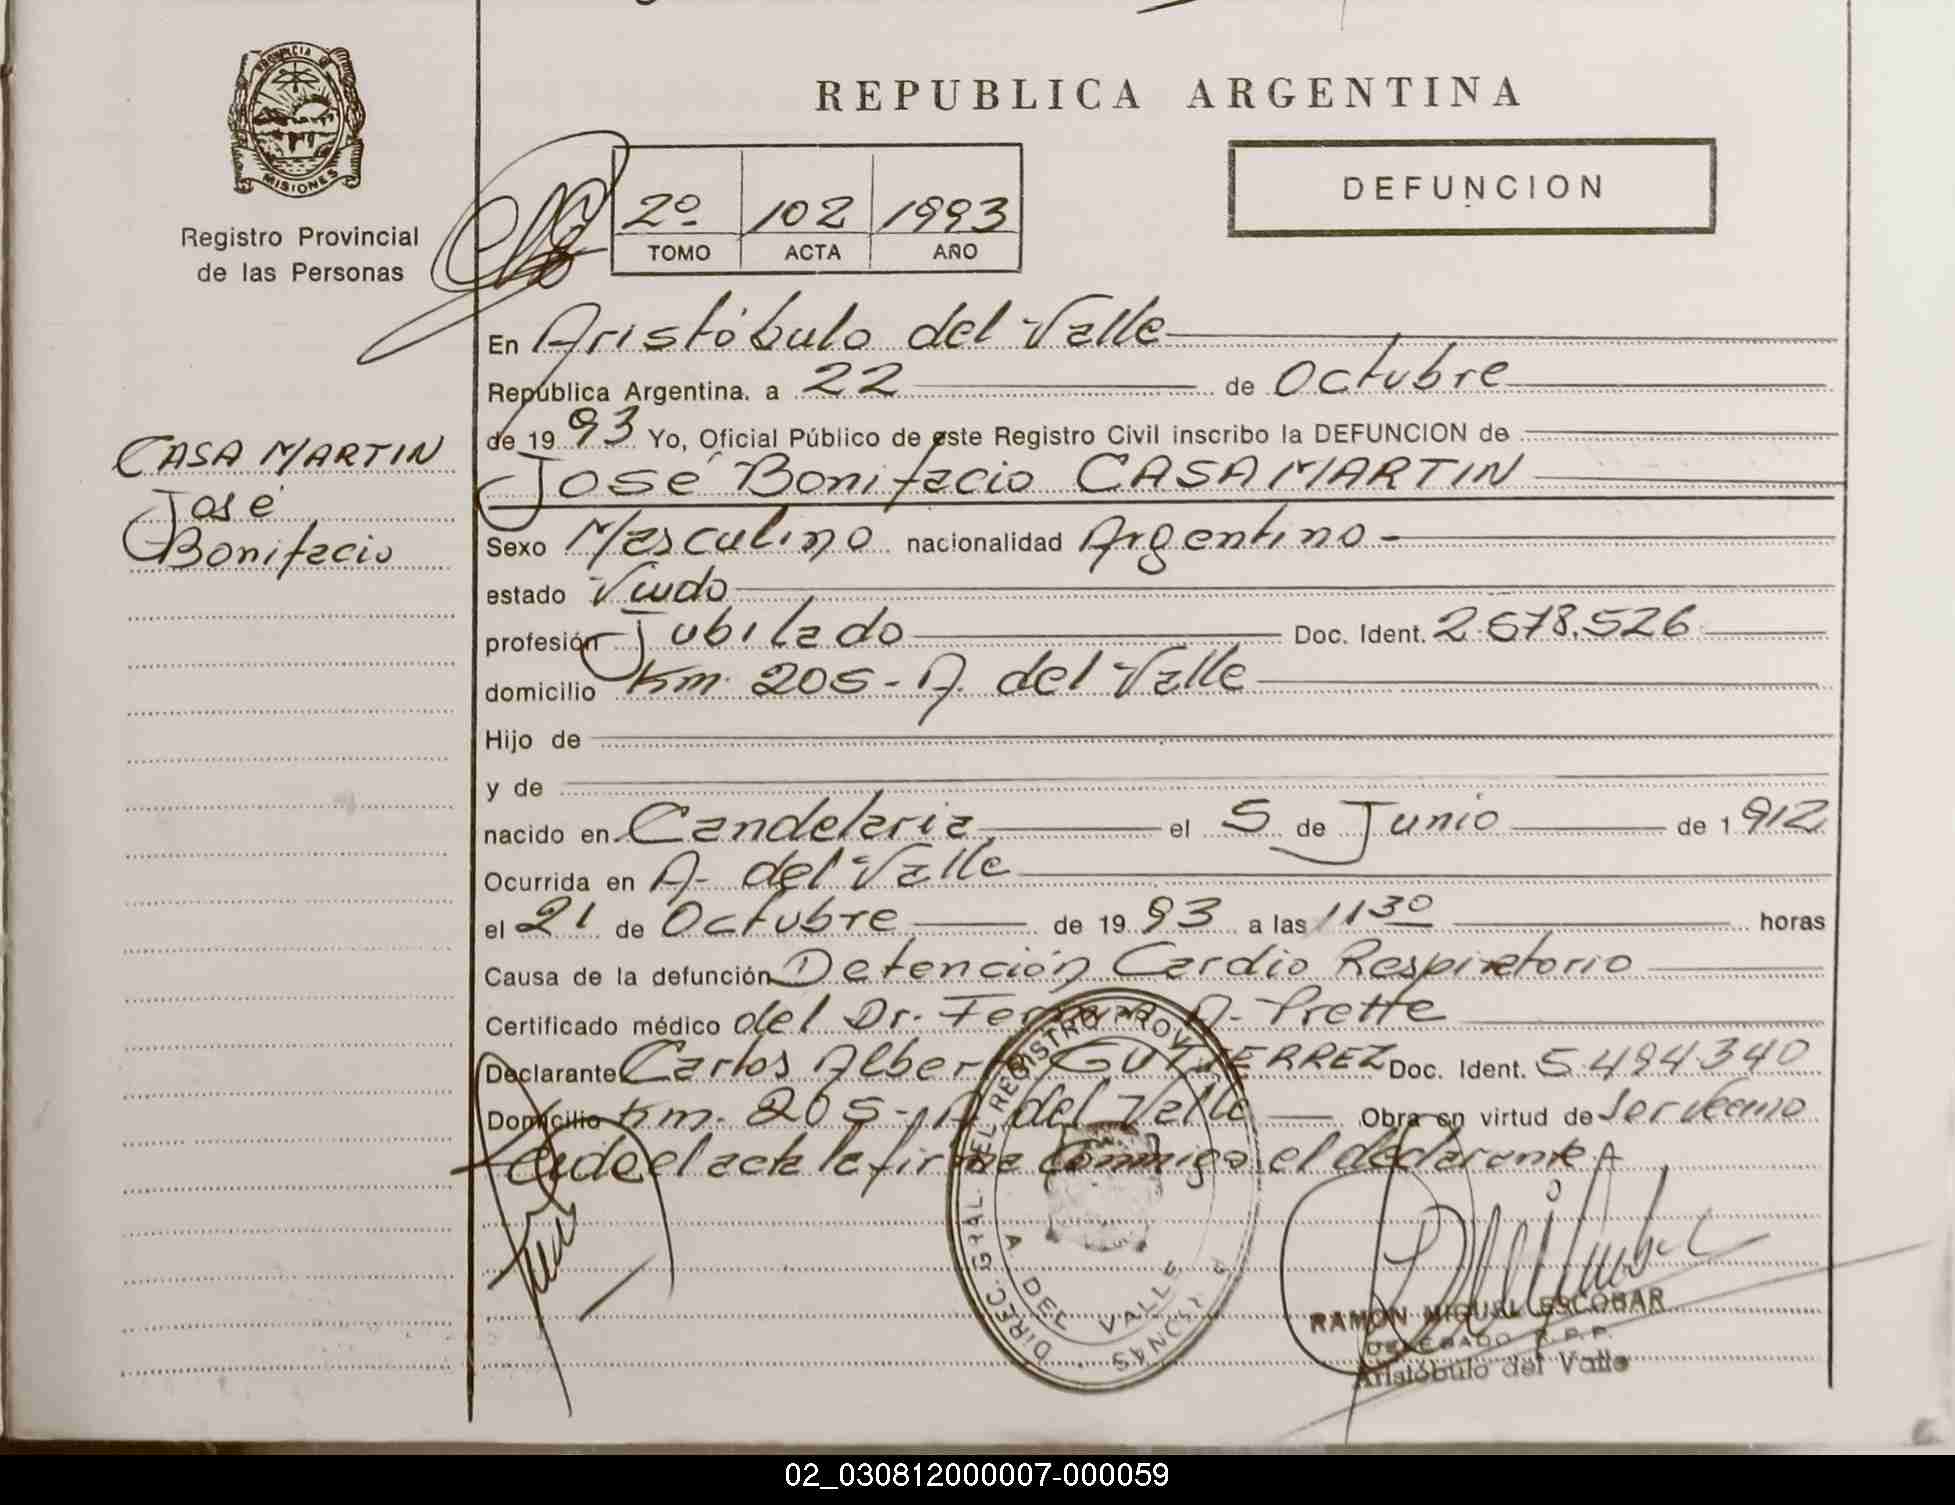 PROVINCIA DE
MISIONES
Registro Provincial
de las Personas
REPUBLICA ARGENTINA
DEFUNCION
2º 102 1993
TOMO ACTA AÑO
CASA MARTIN
José
Bonifacio
En Aristóbulo del Valle
República Argentina, a 22 de Octubre
de 1993 Yo, Oficial Público de este Registro Civil inscribo la DEFUNCION de
José Bonifacio CASA MARTIN
Sexo Masculino nacionalidad Argentino -
estado Viudo
profesión Jubilado Doc. Ident. 2.678.526
domicilio Km. 205 - A. del Valle
Hijo de
y de
nacido en Candelaria el 5 de Junio de 1912
Ocurrida en A. del Valle
el 21 de Octubre de 1993 a las 11 30 horas
Causa de la defunción Detención Cardio Respiratorio
Certificado médico del Dr. A. Prette
Declarante Carlos Alberto GUTIERREZ Doc. Ident. 5.494.340
Domicilio Km. 205 - A. del Valle Obra en virtud de ser vecino
Leida el acta la firma conmigo el declarante
DIREC. GRAL DEL REGISTRO PROV. PERSONAS
A. DEL VALLE
RAMON MIGUEL ESCOBAR
DELEGADO R.P.P.
Aristóbulo del Valle
02_030812000007-000059